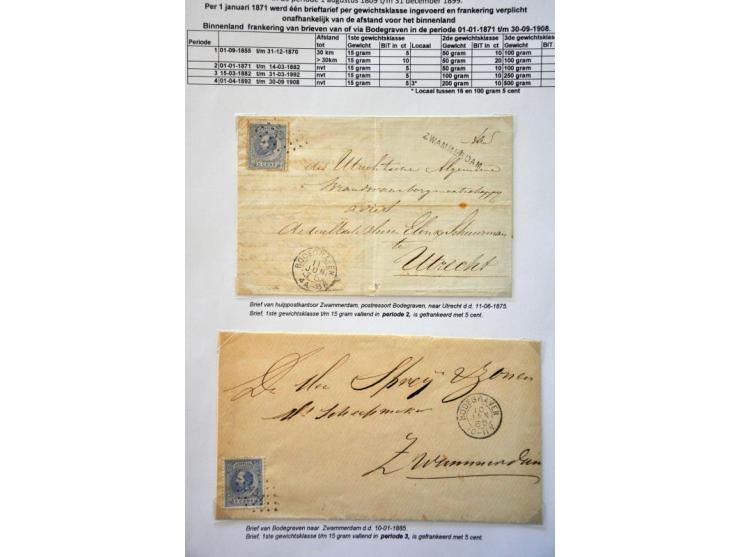 in de periode 1 augustus 1809 t/m 31 december 1899.
Per 1 januari 1871 werd één brieftarief per gewichtsklasse ingevoerd en frankering verplicht
onafhankelijk van de afstand voor het binnenland
Binnenland frankering van brieven van of via Bodegraven in de periode 01-01-1871 t/m 30-09-1908.
Periode Afstand 1ste gewichtsklasse 2de gewichtsklasse 3de gewichtsklasse
tot Gewicht BIT in ct Locaal Gewicht BIT in ct Gewicht BIT
1 01-09-1855 t/m 31-12-1870 30 km 15 gram 5 50 gram 10 100 gram
> 30km 15 gram 10 50 gram 20 100 gram
2 01-01-1871 t/m 14-03-1882 nvt 15 gram 5 50 gram 10 100 gram
3 15-03-1882 t/m 31-03-1992 nvt 15 gram 5 100 gram 10 250 gram
4 01-04-1892 t/m 30-09 1908 nvt 15 gram 5 3* 200 gram 10 500 gram
* Locaal tussen 16 en 100 gram 5 cent
ZWAMMERDAM
5 CENT
des Utrechtsche Algemeene
Brandwaarborgmaatschappy
te
Utrecht
BODEGRAVEN
11
JUN
Brief van hulppostkantoor Zwammerdam, postressort Bodegraven, naar Utrecht d.d. 11-06-1875.
Brief, 1ste gewichtsklasse t/m 15 gram vallend in periode 2, is gefrankeerd met 5 cent.
De Wed Spreij & Zonen
BODEGRAVEN
10
JAN
85
Zwammerdam
5 CENT
Brief van Bodegraven naar Zwammerdam d.d. 10-01-1885.
Brief, 1ste gewichtsklasse t/m 15 gram vallend in periode 3, is gefrankeerd met 5 cent.